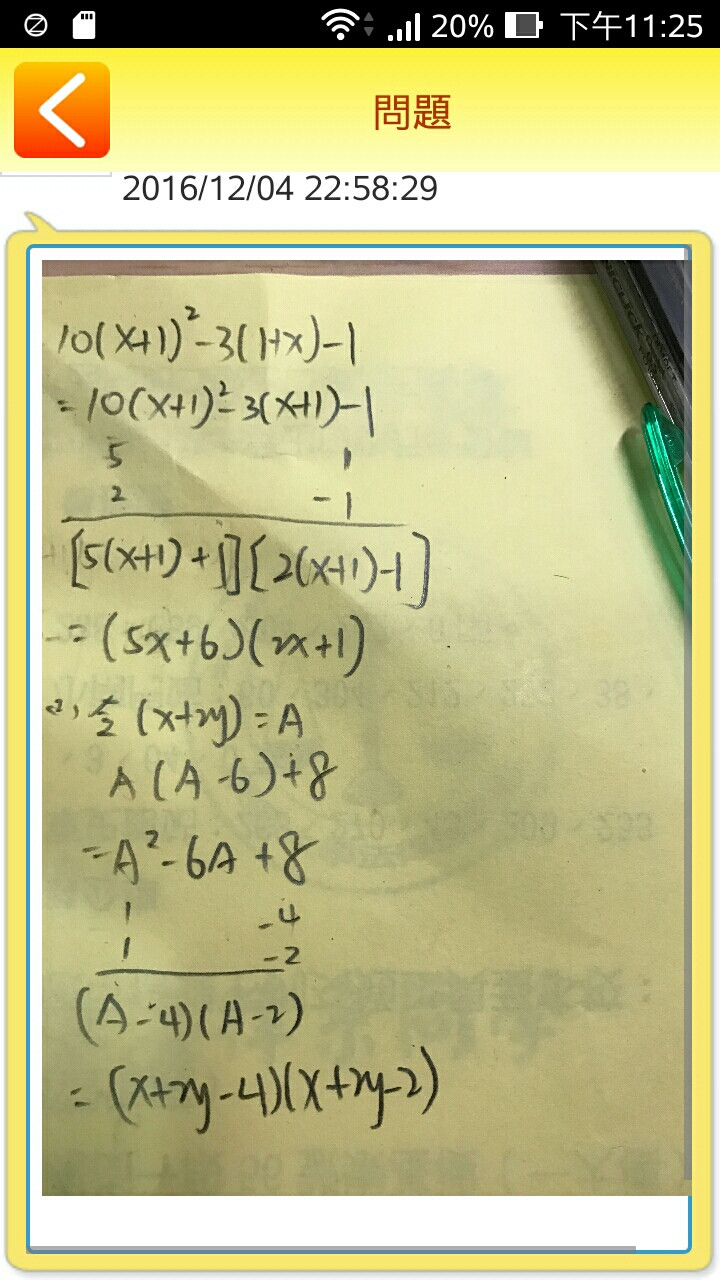 20% 下午11:25
問題
2016/12/04 22:58:29
10(x+1)²-3(1+x)-1
=10(x+1)²-3(x+1)-1
5 1
2 -1
[5(x+1)+1][2(x+1)-1]
=(5x+6)(2x+1)
(2) 令(x+2y)=A
A(A-6)+8
=A²-6A+8
1 -4
1 -2
(A-4)(A-2)
=(x+2y-4)(x+2y-2)